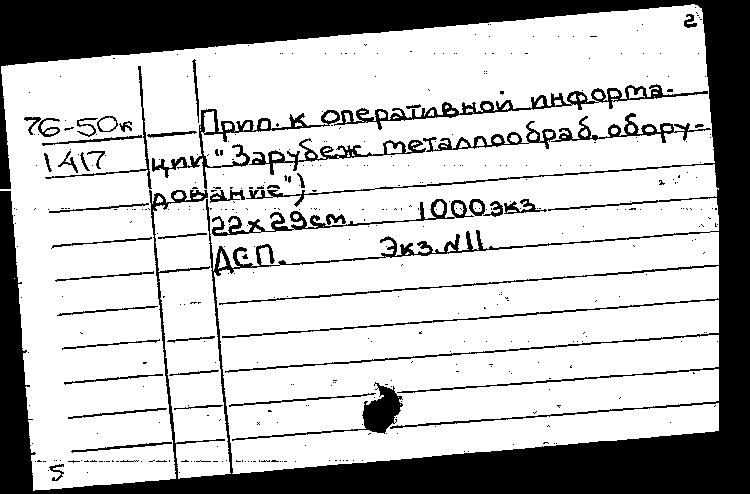 2
76-50к Прил. к оперативной информа-
1417 ции "Зарубеж. металлообраб. обору-
дование").
22x29см. 1000экз.
ДСП. Экз.N11.
5